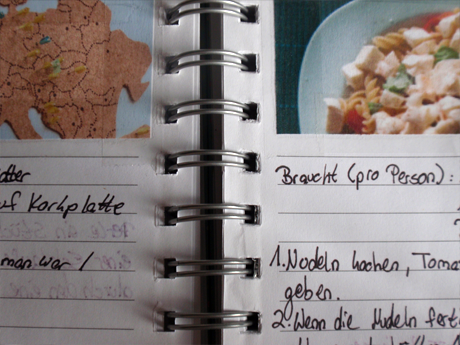 uf Korkplatte
man war /
Braucht (pro Person):
1. Nudeln kochen, Toma
geben.
2. Wenn die Nudeln fert